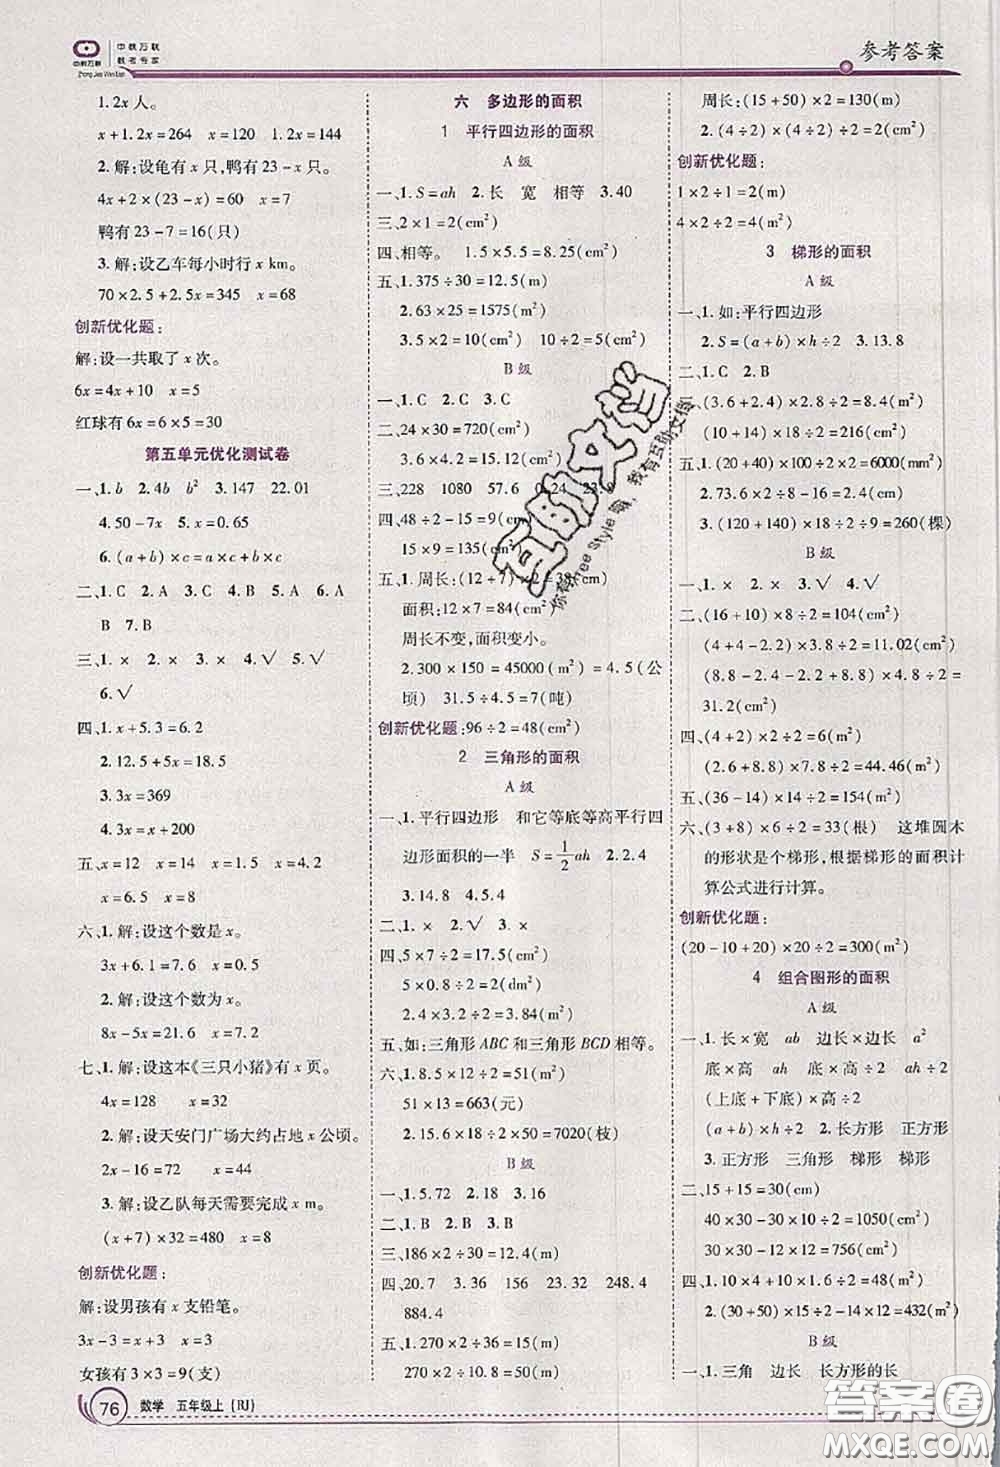 中教万联
中教万联
教考专家
Zhong Jiao Wan Lian
参考答案
1.2x人。
x+1.2x=264 x=120 1.2x=144
2.解:设龟有x只,鸭有23-x只。
4x+2×(23-x)=60 x=7
鸭有23-7=16(只)
3.解:设乙车每小时行x km。
70×2.5+2.5x=345 x=68
创新优化题:
解:设一共取了x次。
6x=4x+10 x=5
红球有6x=6×5=30
第五单元优化测试卷
一、1.b 2.4b b² 3.147 22.01
4.50-7x 5.x=0.65
6.(a+b)×c=a×c+b×c
二、1.C 2.A 3.C 4.A 5.A 6.A
B 7.B
三、1.× 2.× 3.× 4.× 5.√
6.√
四、1.x+5.3=6.2
2.12.5+5x=18.5
3.3x=369
4.3x=x+200
五、x=12 x=14 x=1 x=4.2
x=6.5 x=8
六、1.解:设这个数是x。
3x+6.1=7.6 x=0.5
2.解:设这个数为x。
8x-5x=21.6 x=7.2
七、1.解:设这本《三只小猪》有x页。
4x=128 x=32
2.解:设天安门广场大约占地x公顷。
2x-16=72 x=44
3.解:设乙队每天需要完成x m。
(x+7)×32=480 x=8
创新优化题:
解:设男孩有x支铅笔。
3x-3=x+3 x=3
女孩有3×3=9(支)
六 多边形的面积
1 平行四边形的面积
A级
一、1.S=ah 2.长 宽 相等 3.40
三、2×1=2(cm²)
四、相等。 1.5×5.5=8.25(cm²)
五、1.375÷30=12.5(m)
2.63×25=1575(m²)
3.5×2=10(cm²) 10÷2=5(cm)
B级
一、1.C 2.C 3.C
二、24×30=720(cm²)
3.6×4.2=15.12(cm²)
三、228 1080 57.6 0.24
四、48÷2-15=9(cm)
15×9=135(cm²)
五、1.周长:(12+7)×2=38(cm)
面积:12×7=84(cm²)
周长不变,面积变小。
2.300×150=45000(m²)=4.5(公
顷) 31.5÷4.5=7(吨)
创新优化题:96÷2=48(cm²)
2 三角形的面积
A级
一、1.平行四边形 和它等底等高平行四
边形面积的一半 S=1/2ah 2.2.4
3.14.8 4.5.4
二、1.× 2.√ 3.×
四、5×7÷2=17.5(cm²)
5×0.8÷2=2(dm²)
2.4×3.2÷2=3.84(m²)
五、如:三角形ABC和三角形BCD相等。
六、1.8.5×12÷2=51(m²)
51×13=663(元)
2.15.6×18÷2×50=7020(枝)
B级
一、1.5.72 2.18 3.16
二、1.B 2.B 3.B
三、186×2÷30=12.4(m)
四、20.7 3.36 156 23.32 248.4
884.4
五、1.270×2÷36=15(m)
270×2÷10.8=50(m)
周长:(15+50)×2=130(m)
2.(4÷2)×(4÷2)÷2=2(cm²)
创新优化题:
1×2÷1=2(m)
4×2÷2=4(m²)
3 梯形的面积
A级
一、1.如:平行四边形
2.S=(a+b)×h÷2 3.13.8
二、1.C 2.B
三、(3.6+2.4)×2.8÷2=8.4(m²)
(10+14)×18÷2=216(cm²)
五、1.(50+70)×100÷2=6000(mm²)
2.73.6×2÷(12+20)=4.6(m)
3.(120+140)×18÷2÷9=260(棵)
B级
一、1.× 2.× 3.√ 4.√
二、(16+10)×8÷2=104(cm²)
(4+4-2.2)×3.8÷2=11.02(cm²)
(8.8-2.4+8.8-2.4+2.8)×4÷2=
31.2(cm²)
四、(4+2)×2÷2=6(cm²)
(2.6+8.8)×7.8÷2=44.46(cm²)
五、(36-14)×14÷2=154(m²)
六、(3+8)×6÷2=33(根) 这堆圆木
的形状是个梯形,根据梯形的面积计
算公式进行计算。
创新优化题:
(20-10+20)×20÷2=300(m²)
4 组合图形的面积
A级
一、1.长×宽 ab 边长×边长 a²
底×高 ah 底×高÷2 ah÷2
(上底+下底)×高÷2
(a+b)×h÷2 2.长方形 正方形
3.正方形 三角形 梯形 梯形
二、15+15=30(cm)
40×30-30×10÷2=1050(cm²)
30×30-12×(12+12)÷2=756(cm²)
四、1.10×4+10×1.6÷2=48(m²)
2.(30+50)×15÷2-14×12=432(m²)
B级
一、1.三角 边长 长方形的长
76 数学 五年级上 (RJ)
互助文档
你有Free Style嘛,我有互助文档
答案圈
MXQE.COM